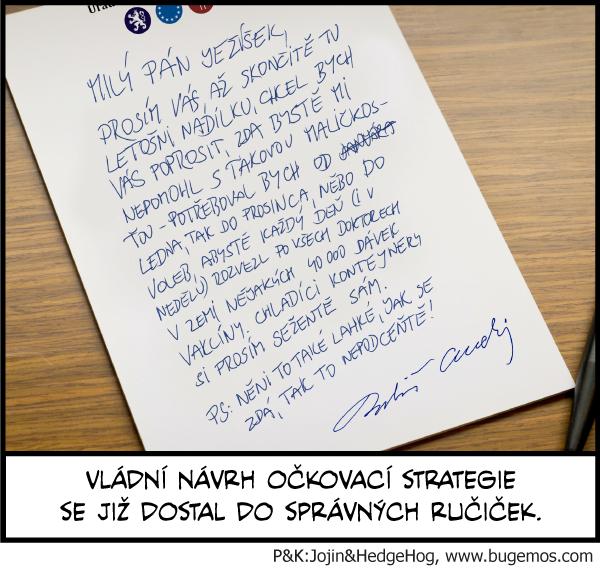 MILÝ PÁN JEZÍŠEK,
PROSÍM VÁS AŽ SKONČITĚ TU
LETOŠNÍ NÁDÍLKU, CHCEL BYCH
VÁS POPROSIT, ZDA BYSTĚ MI
NEPOMOHL S TAKOVOU MALIČKOS-
ŤOU - POTŘEBOVAL BYCH OD
LEDNA, TAK DO PROSINCA, NĚBO DO
VOLEB, ABYSTĚ KAŽDÝ DEŇ (I V
NEDĚLU) ROZVEZL PO VŠECH DOKTORECH
V ZEMI NĚJAKÝCH 40 000 DÁVEK
VAKCÍNY. CHLADÍCI KONTEJNÉRY
SI PROSÍM SEŽENTĚ SÁM.
PS: NĚNI TO TAKÉ LAHKÉ, JAK SE
ZDÁ, TAK TO NEPODCEŇTĚ!
VLÁDNÍ NÁVRH OČKOVACÍ STRATEGIE
SE JIŽ DOSTAL DO SPRÁVNÝCH RUČIČEK.
P&K:Jojin&HedgeHog, www.bugemos.com